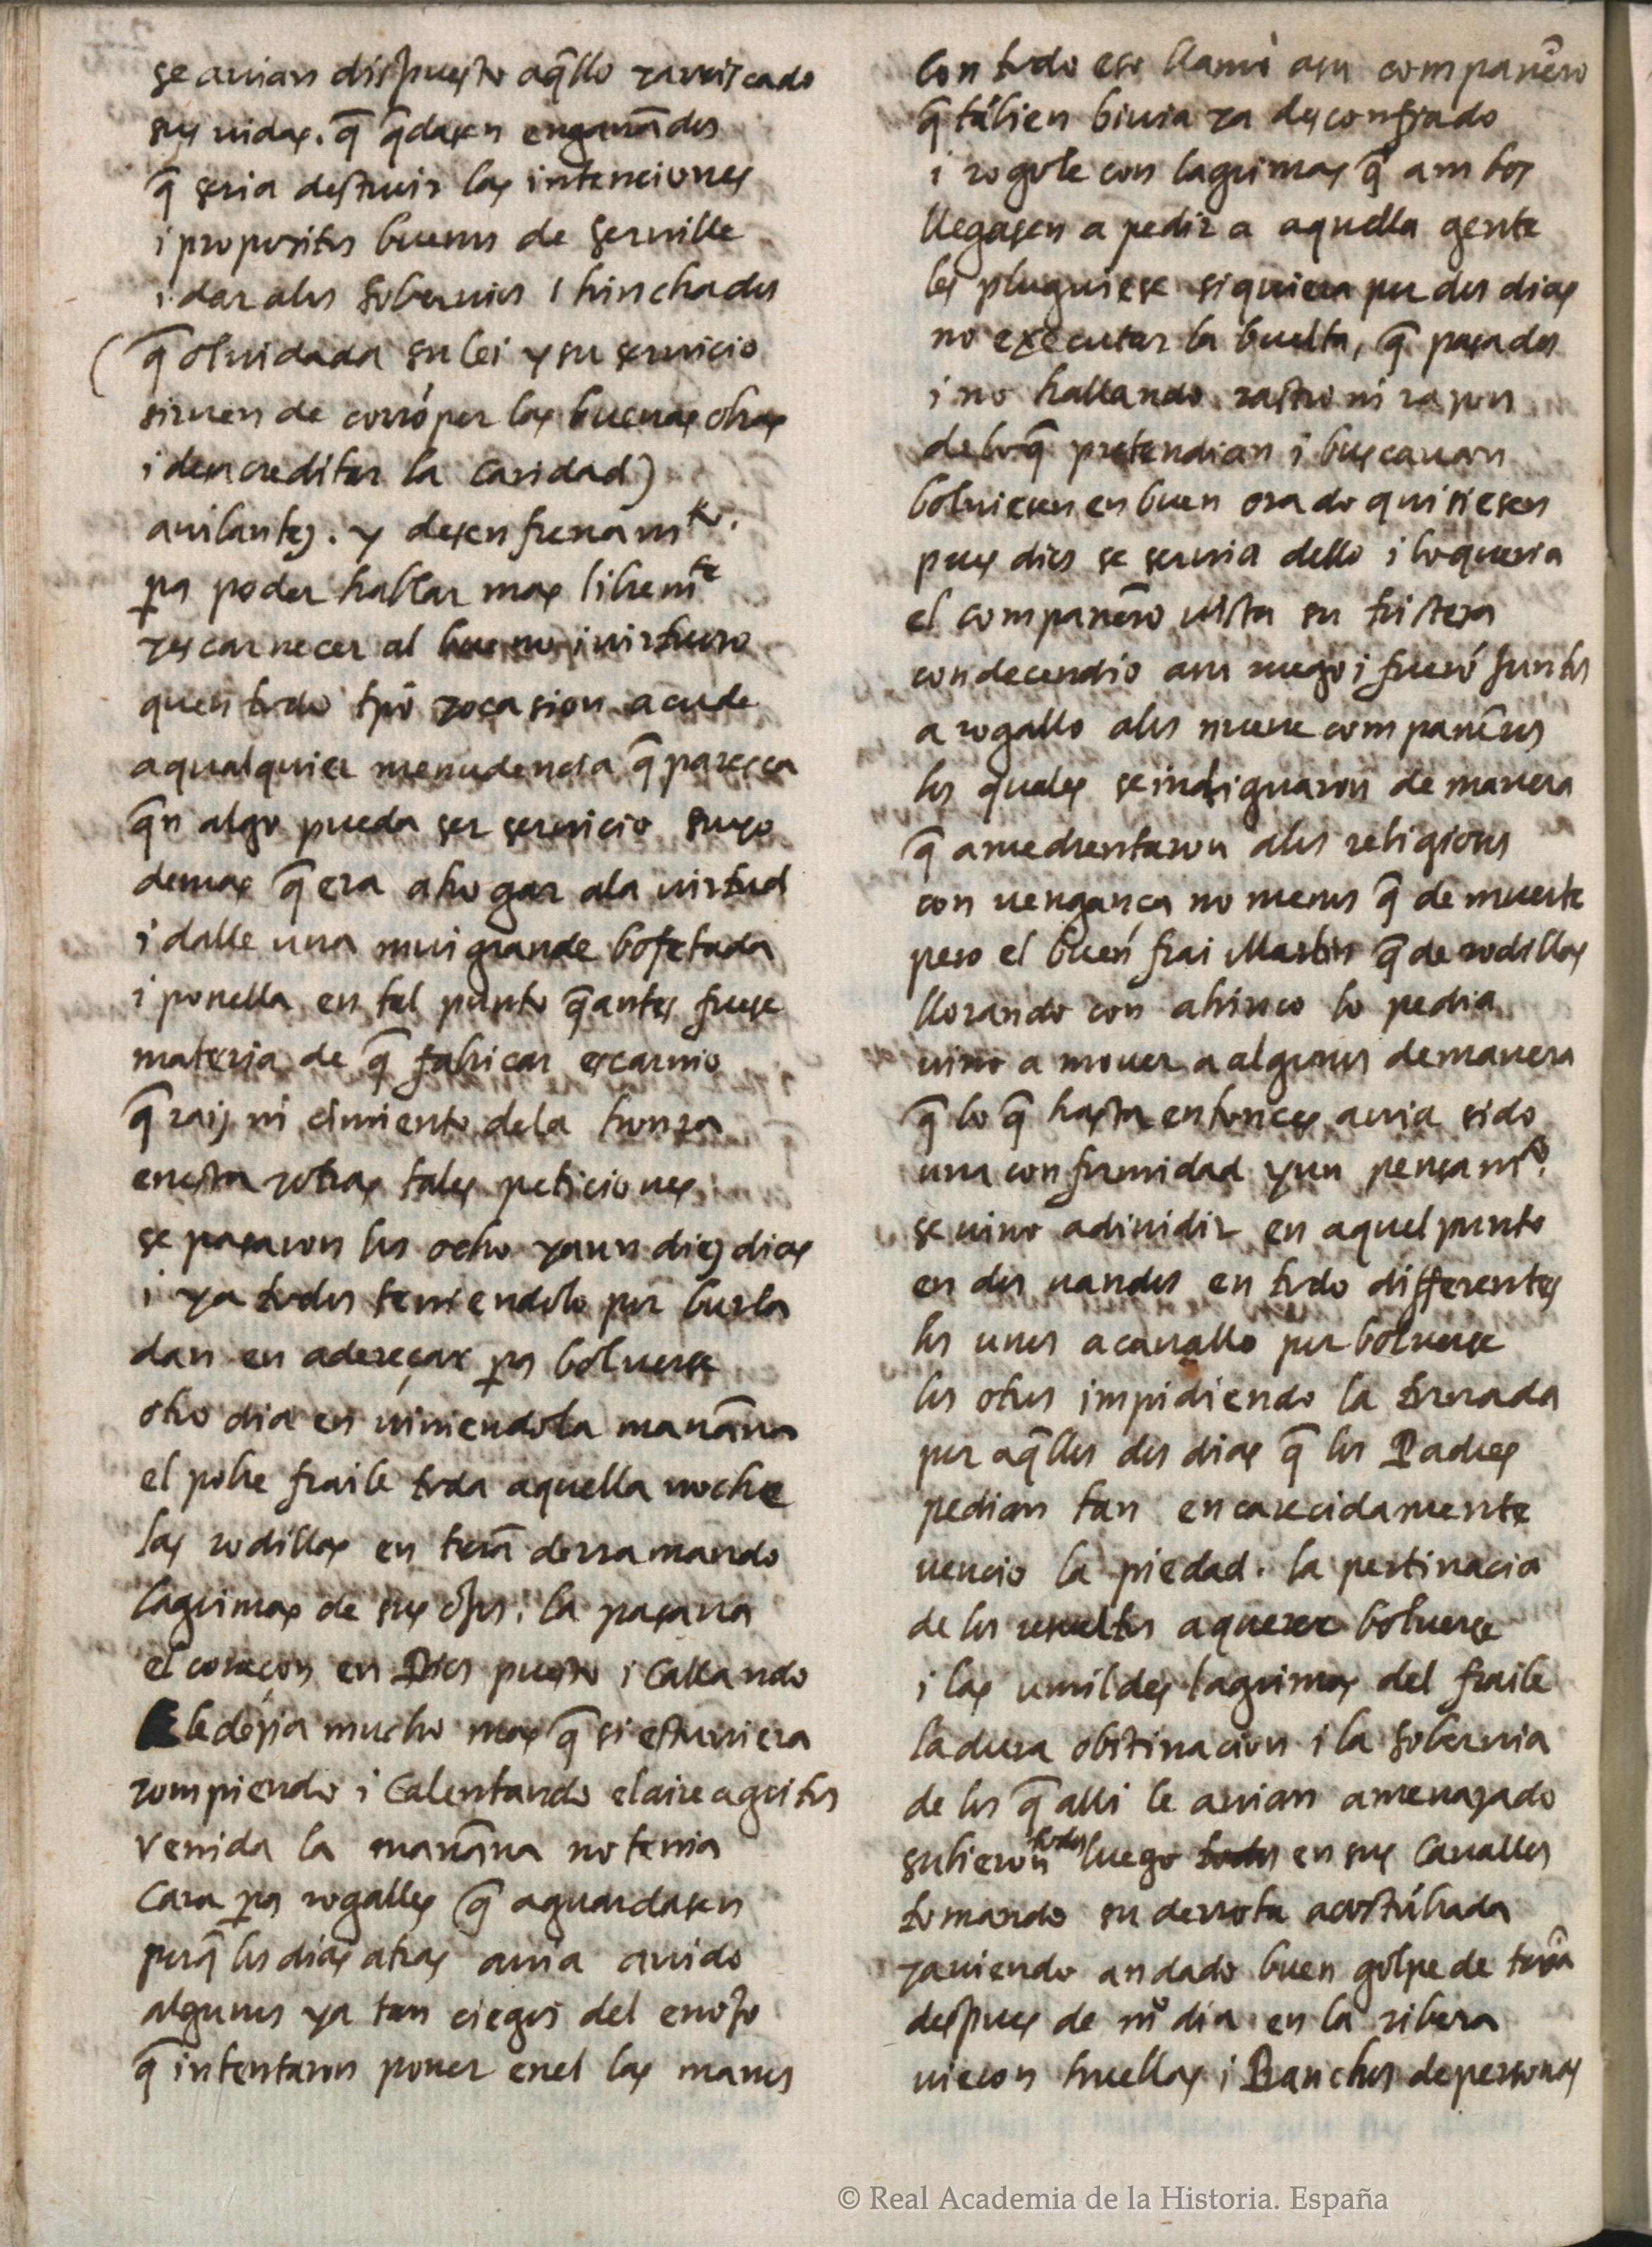 se auian dispuesto aq̃llo yarriscado
sus uidas. q̃ q̃dasen engañados
q̃ seria destruir las intenciones
i propositos buenos de seruille
i dar alos soberuios i hinchados
(q̃ oluidada su lei y su seruicio
siruen de corróper las buenas obras
i desacreditar la caridad)
auilantez. y desenfrenamto.
pa poder hablar mas libremte
yescarnecer al bueno i uirtuoso
quen todo tpõ yocasion acude
aqualquier menudencia q̃ paresca
q̃n algo pueda ser seruicio suyo
demas q̃ era ahogar ala uirtud
i dalle una mui grande bofetada
i ponella en tal punto q̃ antes fuese
materia de q̃ fabricar escarnio
q̃ raiz ni cimiento dela honra
enesta yotras tales peticiones
se pasaron los ocho yaun diez dias
i ya todos teniendolo por burla
dan en adereçar pa boluerse
otro dia en uiniendo la mañana
el pobre fraile toda aquella noche
las rodillas en trã̃ derramando
lagrimas de sus ojos. la pasaua
el coraçon en Dios puesto i callando
le dezia mucho mas q̃ si estuuiera
rompiendo i calentando el aire agritos
Venida la mañana no tenia
cara pa rogalles q̃ aguardasen
porq̃ los dias atras auia auido
algunos ya tan ciegos del enojo
q̃ intentaron poner enel las manos
Con todo eso llamó asu compañero
q̃ tãbien biuia ya desconfiado
i rogole con lagrimas q̃ ambos
llegasen a pedir a aquella gente
les pluguiese siquiera por dos dias
no executar la buelta, q̃ pasados
i no hallando rastro ni razon
deloq̃ pretendian i buscauan
boluiesen en buen ora do quisiesen
pues dios se seruia dello i loqueria
el compañero uista su tristeza
condecendio asu ruego i fueró juntos
a rogallo alos nueue compañeros
los quales se indignaron de manera
q̃ amedrentaron alos religiosos
con uengança no menos q̃ de muerte
pero el buen frai Martin q̃ de rodillas
llorando con ahinco lo pedia
uino a mouer a algunos de manera
q̃ lo q̃ hasta entonces auia sido
una conformidad yun pensamto.
se uino adiuidir en aquel punto
en dos uandos en todo differentes
los unos acauallo por boluerse
los otros impidiendo la tornada
por aq̃llos dos dias q̃ los Padres
pedian tan encarecidamente
uencio la piedad. la pertinacia
de los resueltos aquerer boluerse
i las umildes lagrimas del fraile
la dura obstinacion i la soberuia
de los q̃ alli le auian amenazado
subieron todos luego todos en sus cauallos
tomando su derrota acostũbrada
yauiendo andado buen golpe de trã̃
despues de mº dia en la ribera
uieron huellas i Ranchos depersonas
© Real Academia de la Historia. España